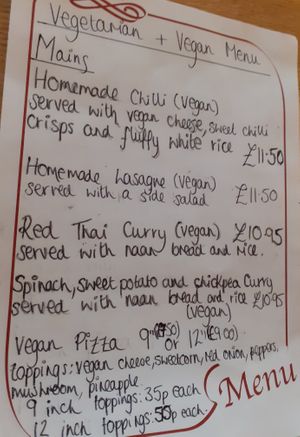 Vegetarian + Vegan Menu
Mains
Homemade Chilli (vegan)
served with vegan cheese, sweet chilli
crisps and fluffy white rice £11.50
Homemade Lasagne (vegan)
served with a side salad £11.50
Red Thai Curry (vegan) £10.95
served with naan bread and rice.
Spinach, sweet potato and chickpea Curry
served with naan bread and rice £10.95
(vegan)
Vegan Pizza 9" or 12" (£9.00)
toppings: vegan cheese, sweetcorn, red onion, peppers,
mushroom, pineapple
9 inch toppings: 35p each
12 inch toppings: 55p each.
Menu